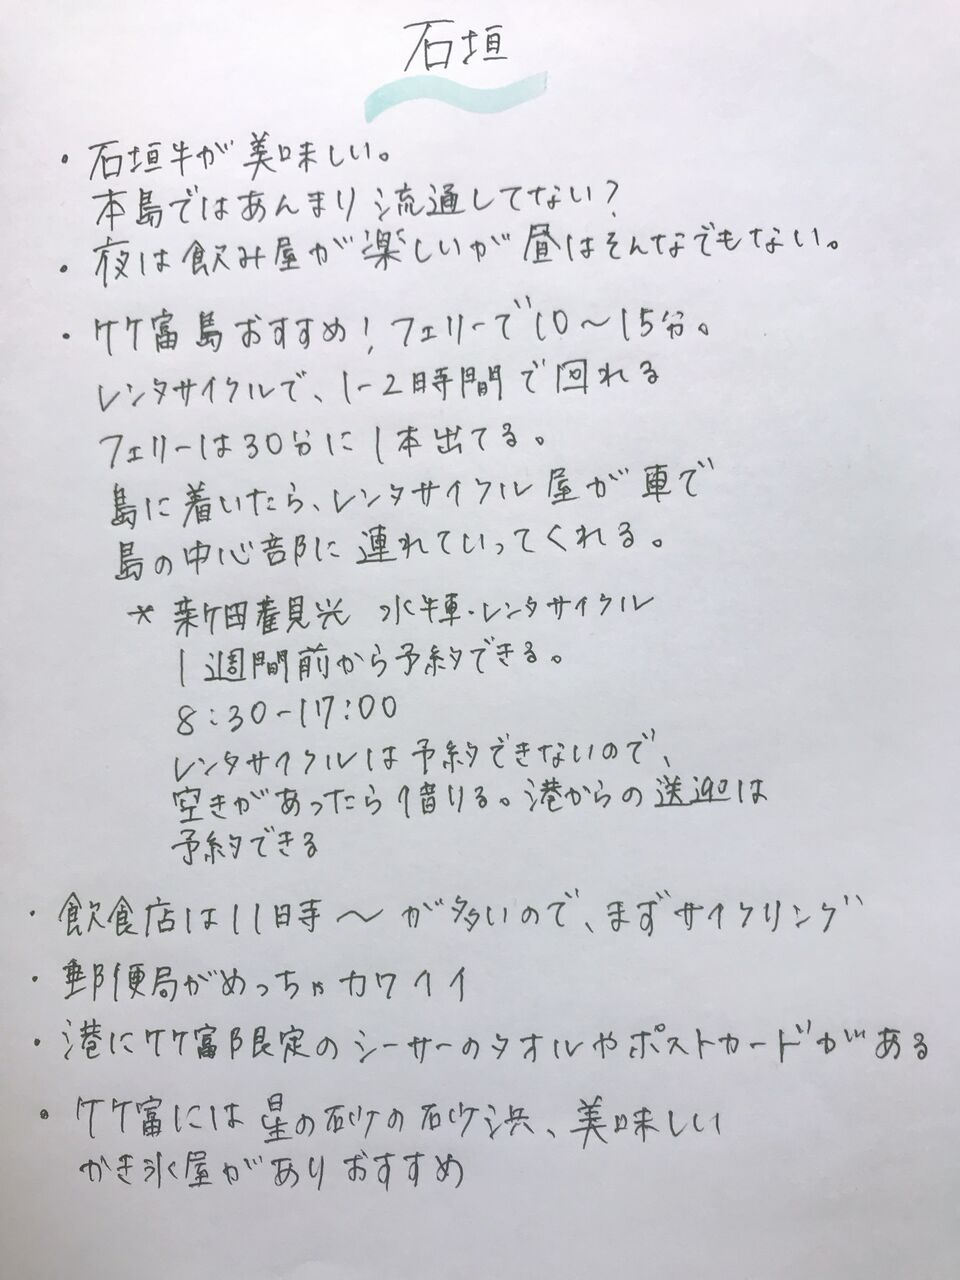 石垣
・石垣牛が美味しい。
本島ではあんまり流通してない?
・夜は飲み屋が楽しいが昼はそんなでもない。
・竹富島おすすめ!フェリーで10〜15分。
レンタサイクルで、1-2時間で回れる
フェリーは30分に1本出てる。
島に着いたら、レンタサイクル屋が車で
島の中心部に連れていってくれる。
* 新田観光 水牛車・レンタサイクル
1週間前から予約できる。
8:30-17:00
レンタサイクルは予約できないので、
空きがあったら借りる。港からの送迎は
予約できる
・飲食店は11時〜が多いので、まずサイクリング
・郵便局がめっちゃカワイイ
・港に竹富限定のシーサーのタオルやポストカードがある
・竹富には星の砂の砂浜、美味しい
かき氷屋がありおすすめ